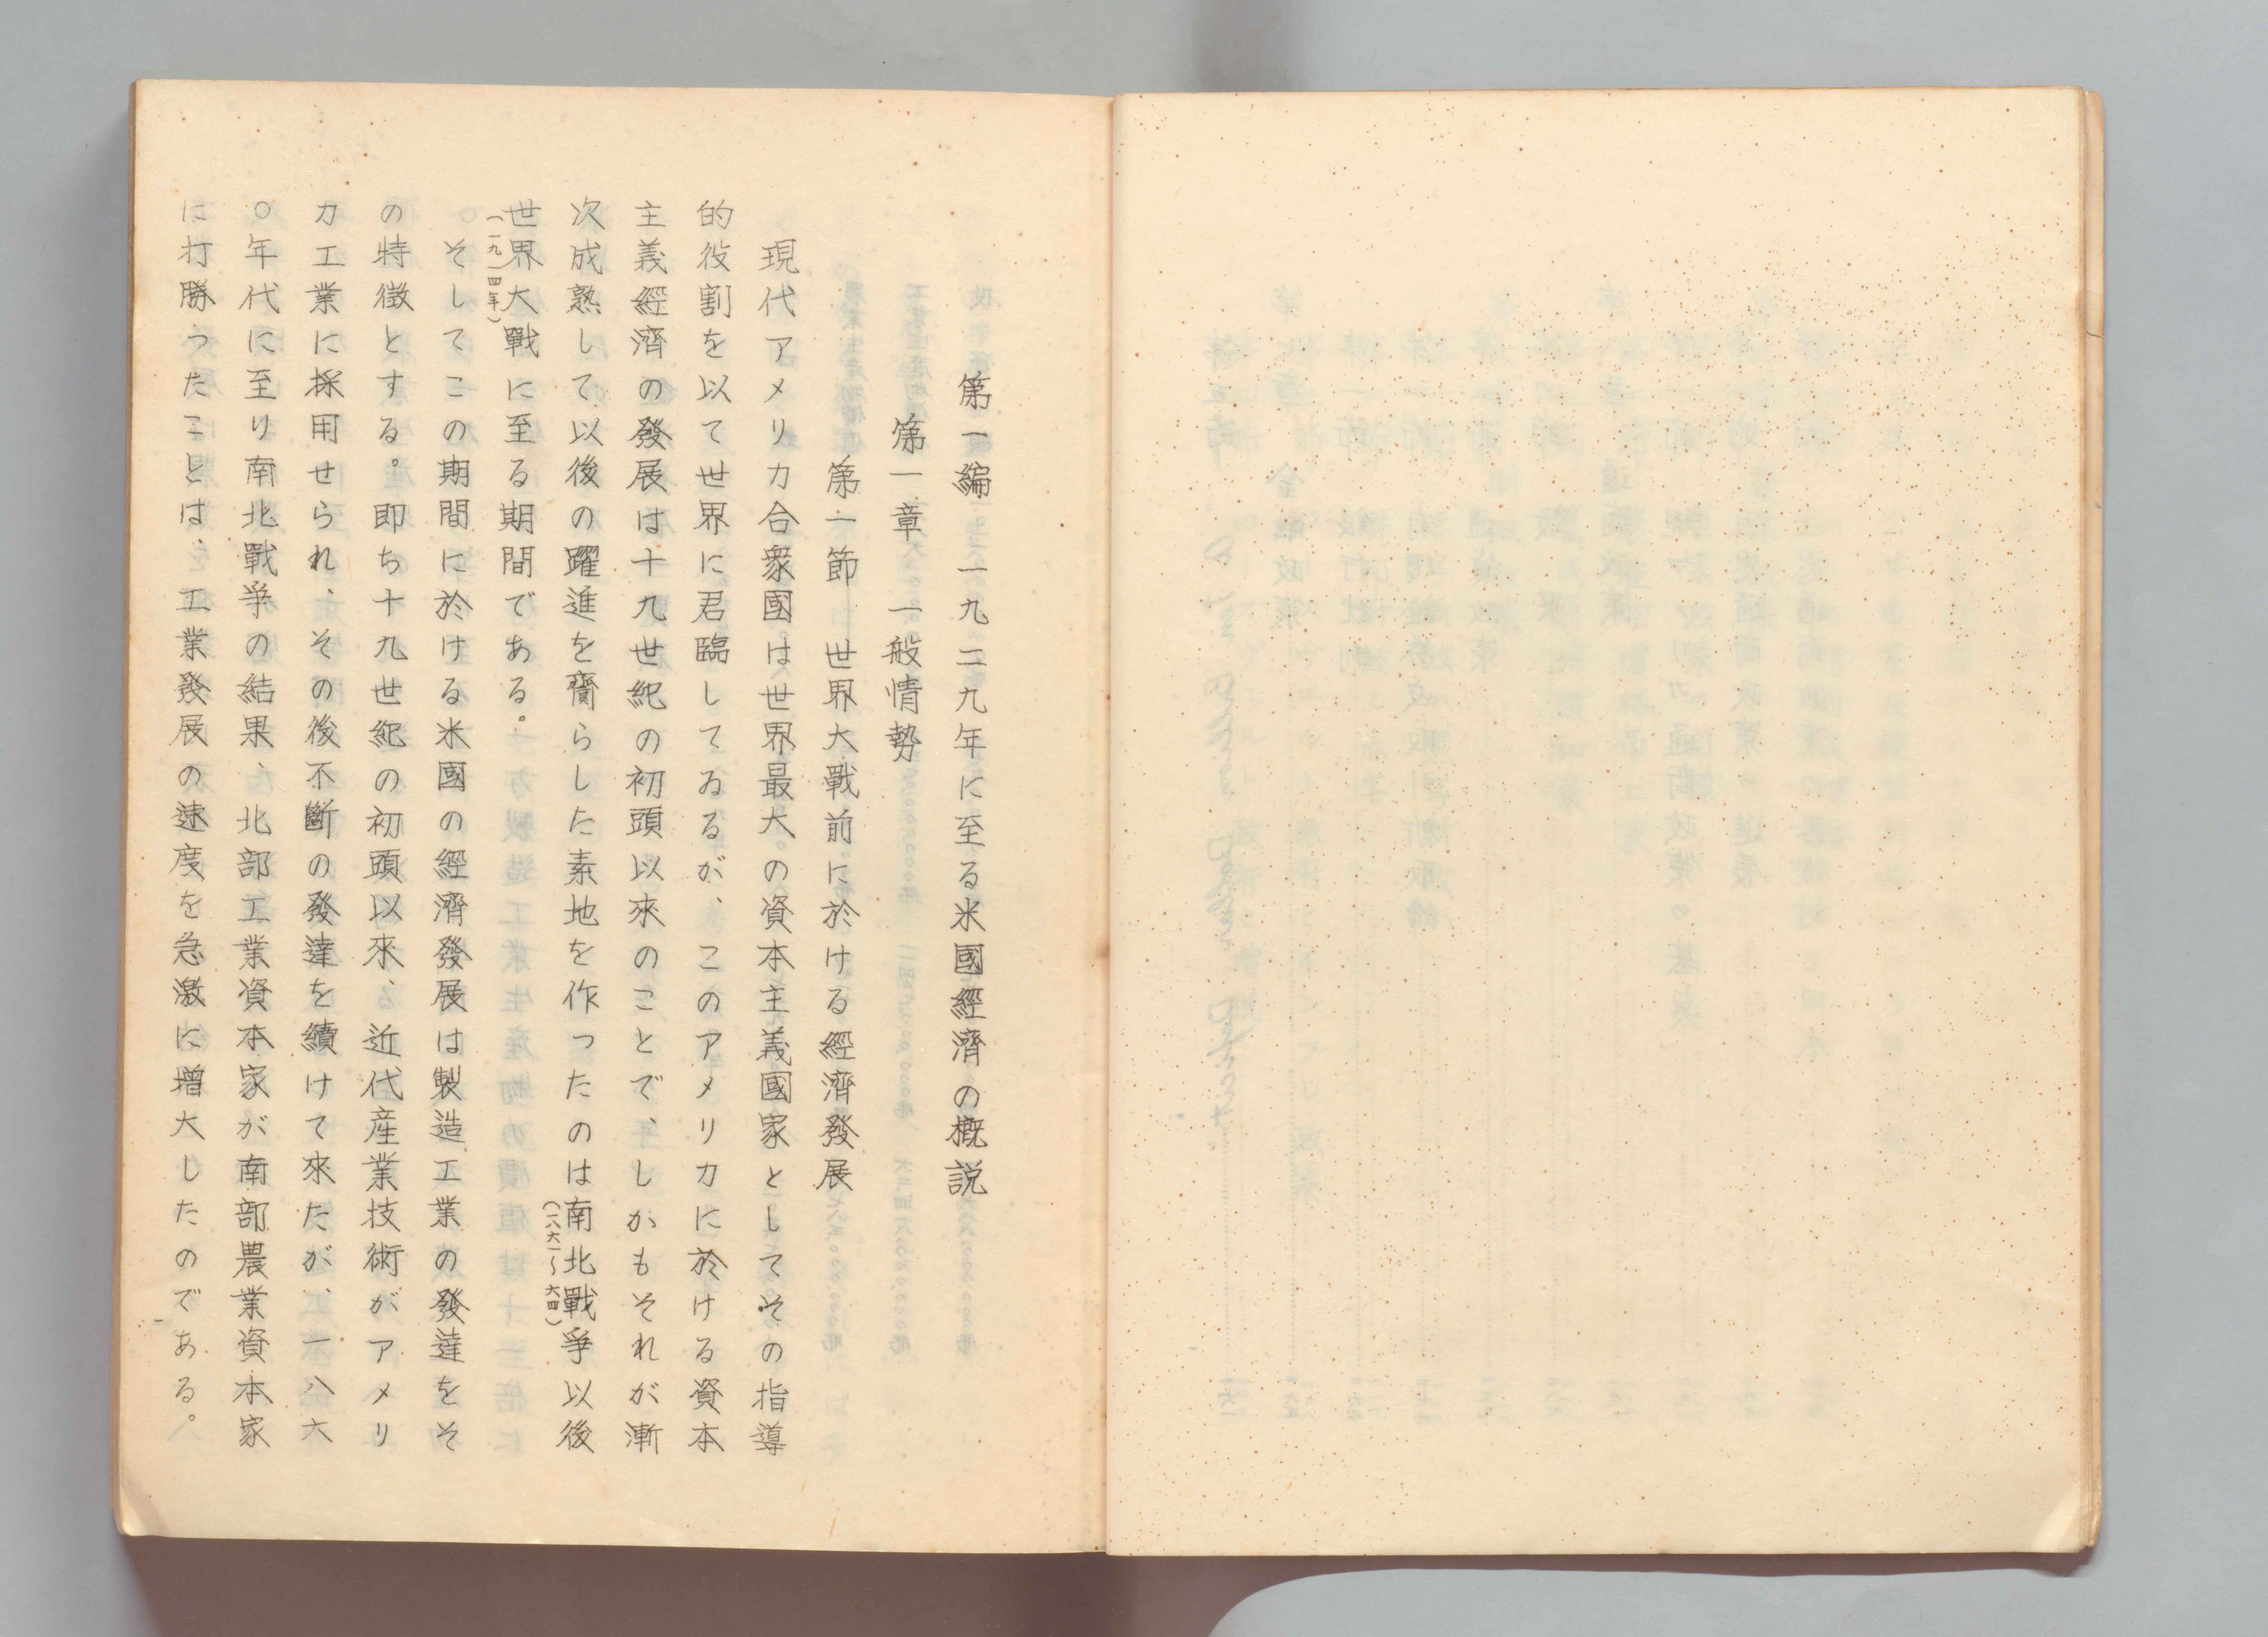 第一編 一九二九年に至る米國經濟の概説
第一章 一般情勢
第一節 世界大戰前に於ける經濟發展
現代アメリカ合衆國は世界最大の資本主義國家としてその指導
的役割を以て世界に君臨してゐるが、このアメリカに於ける資本
主義經濟の發展は十九世紀の初頭以來のことで、しかもそれが漸
次成熟して以後の躍進を齎らした素地を作ったのは南北戰爭以後
(一八六一〜六四)
世界大戰に至る期間である。
(一九一四年)
そしてこの期間に於ける米國の經濟發展は製造工業の發達をそ
の特徴とする。即ち十九世紀の初頭以來、近代産業技術がアメリ
カ工業に採用せられ、その後不斷の發達を續けて來たが、一八六
〇年代に至り南北戰爭の結果、北部工業資本家が南部農業資本家
に打勝ったことは、工業發展の速度を急激に増大したのである。